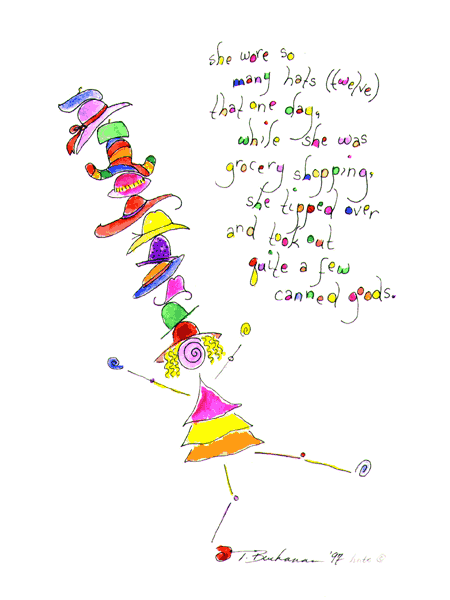 she wore so
many hats (twelve)
that one day,
while she was
grocery shopping,
she tipped over
and took out
quite a few
canned gods.
T. Buchanan '97